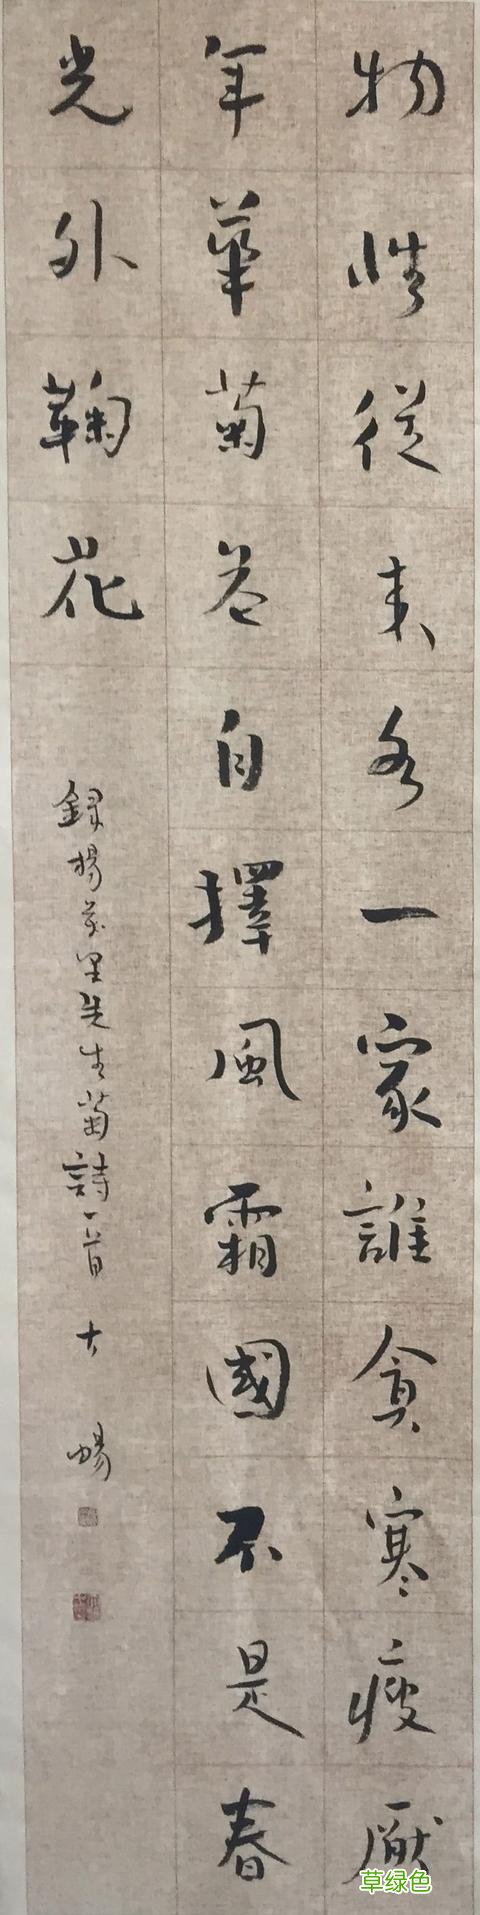 物情從來各一家誰貪寒瘦厭
年華菊花自擇風霜國不是春
光外鞠花
錄楊萬里先生菊詩一首
草绿色